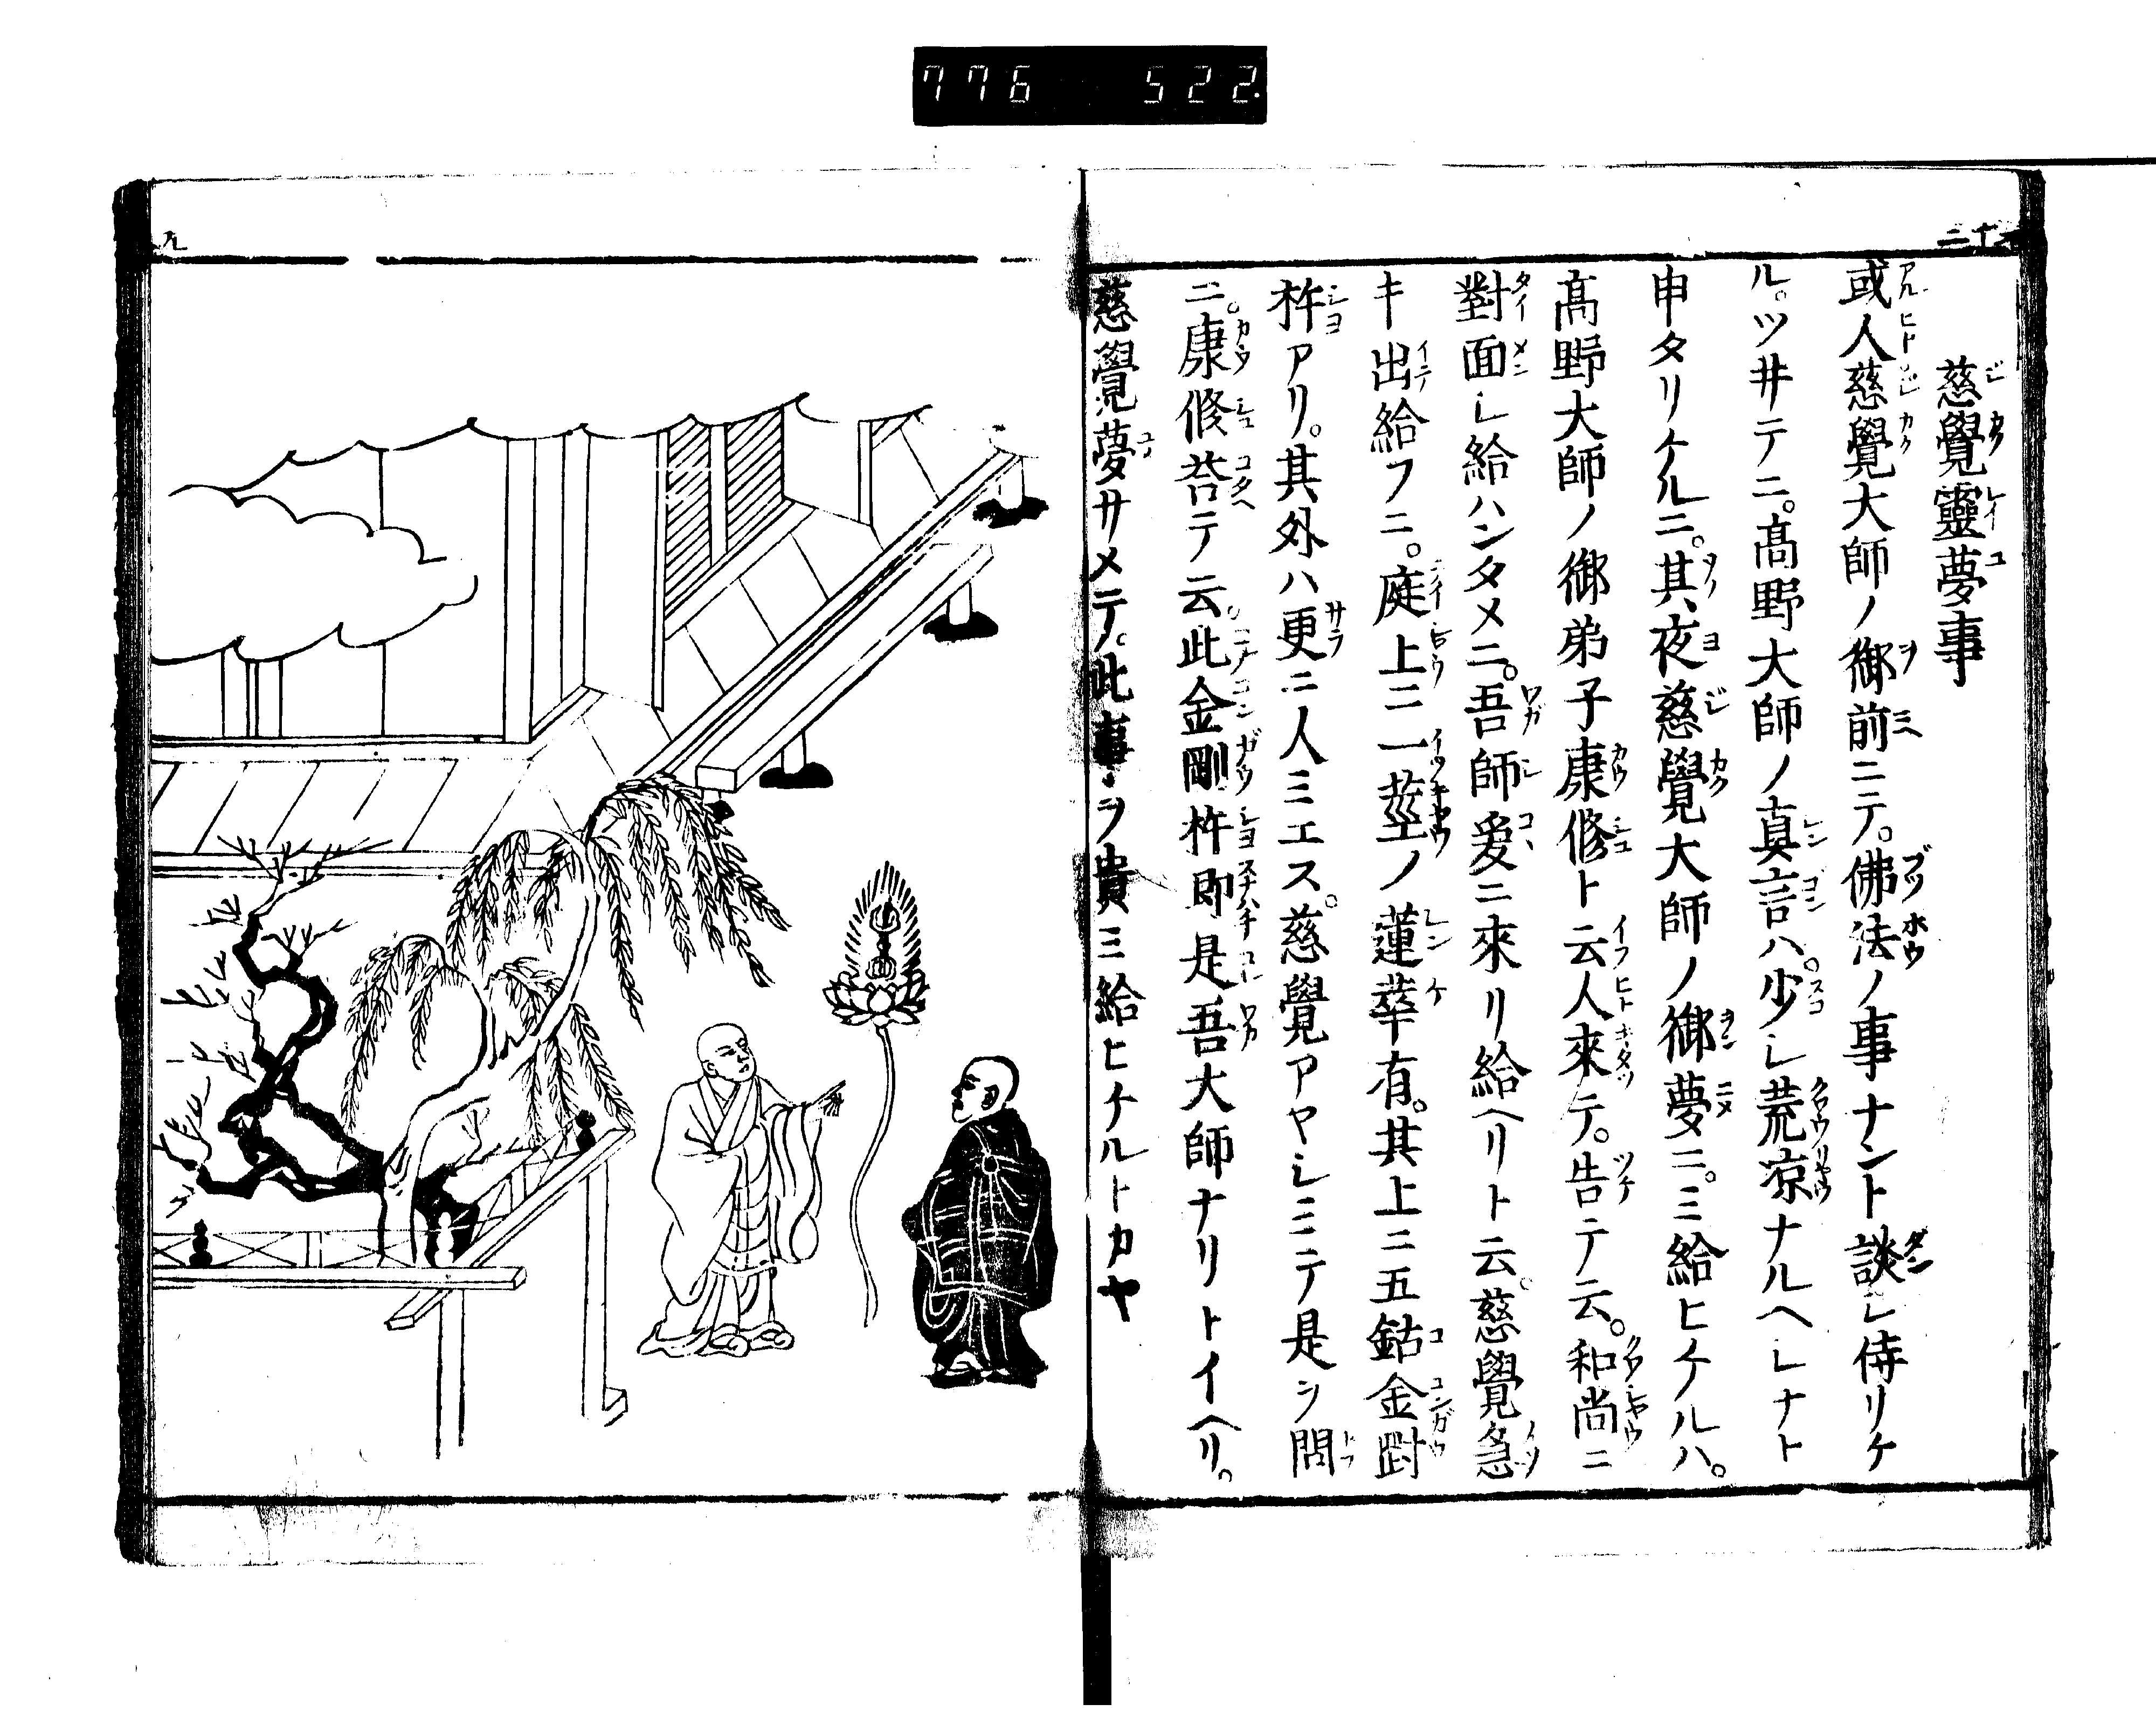 776 522
二十
慈覺靈夢事
或人慈覺大師ノ御前ニテ。佛法ノ事ナント談シ侍リケ
ル。ツ井テニ。髙野大師ノ真言ハ。少シ荒凉ナルヘシナト
申タリケルニ。其夜慈覺大師ノ御夢ニ。ミ給ヒケルハ。
髙野大師ノ御弟子康修ト云人來テ。告テ云。和尚ニ
對面シ給ハンタメニ。吾師爰ニ來リ給ヘリト云。慈覺急
キ出給フニ。庭上ニ一莖ノ蓮華有。其上ニ五鈷金剛
杵アリ。其外ハ更ニ人ミエス。慈覺アヤシミテ是ヲ問
ニ。康修荅テ云。此金剛杵即是吾大師ナリトイヘリ。
慈覺夢サメテ。此事ヲ貴ミ給ヒケルトカヤ
九